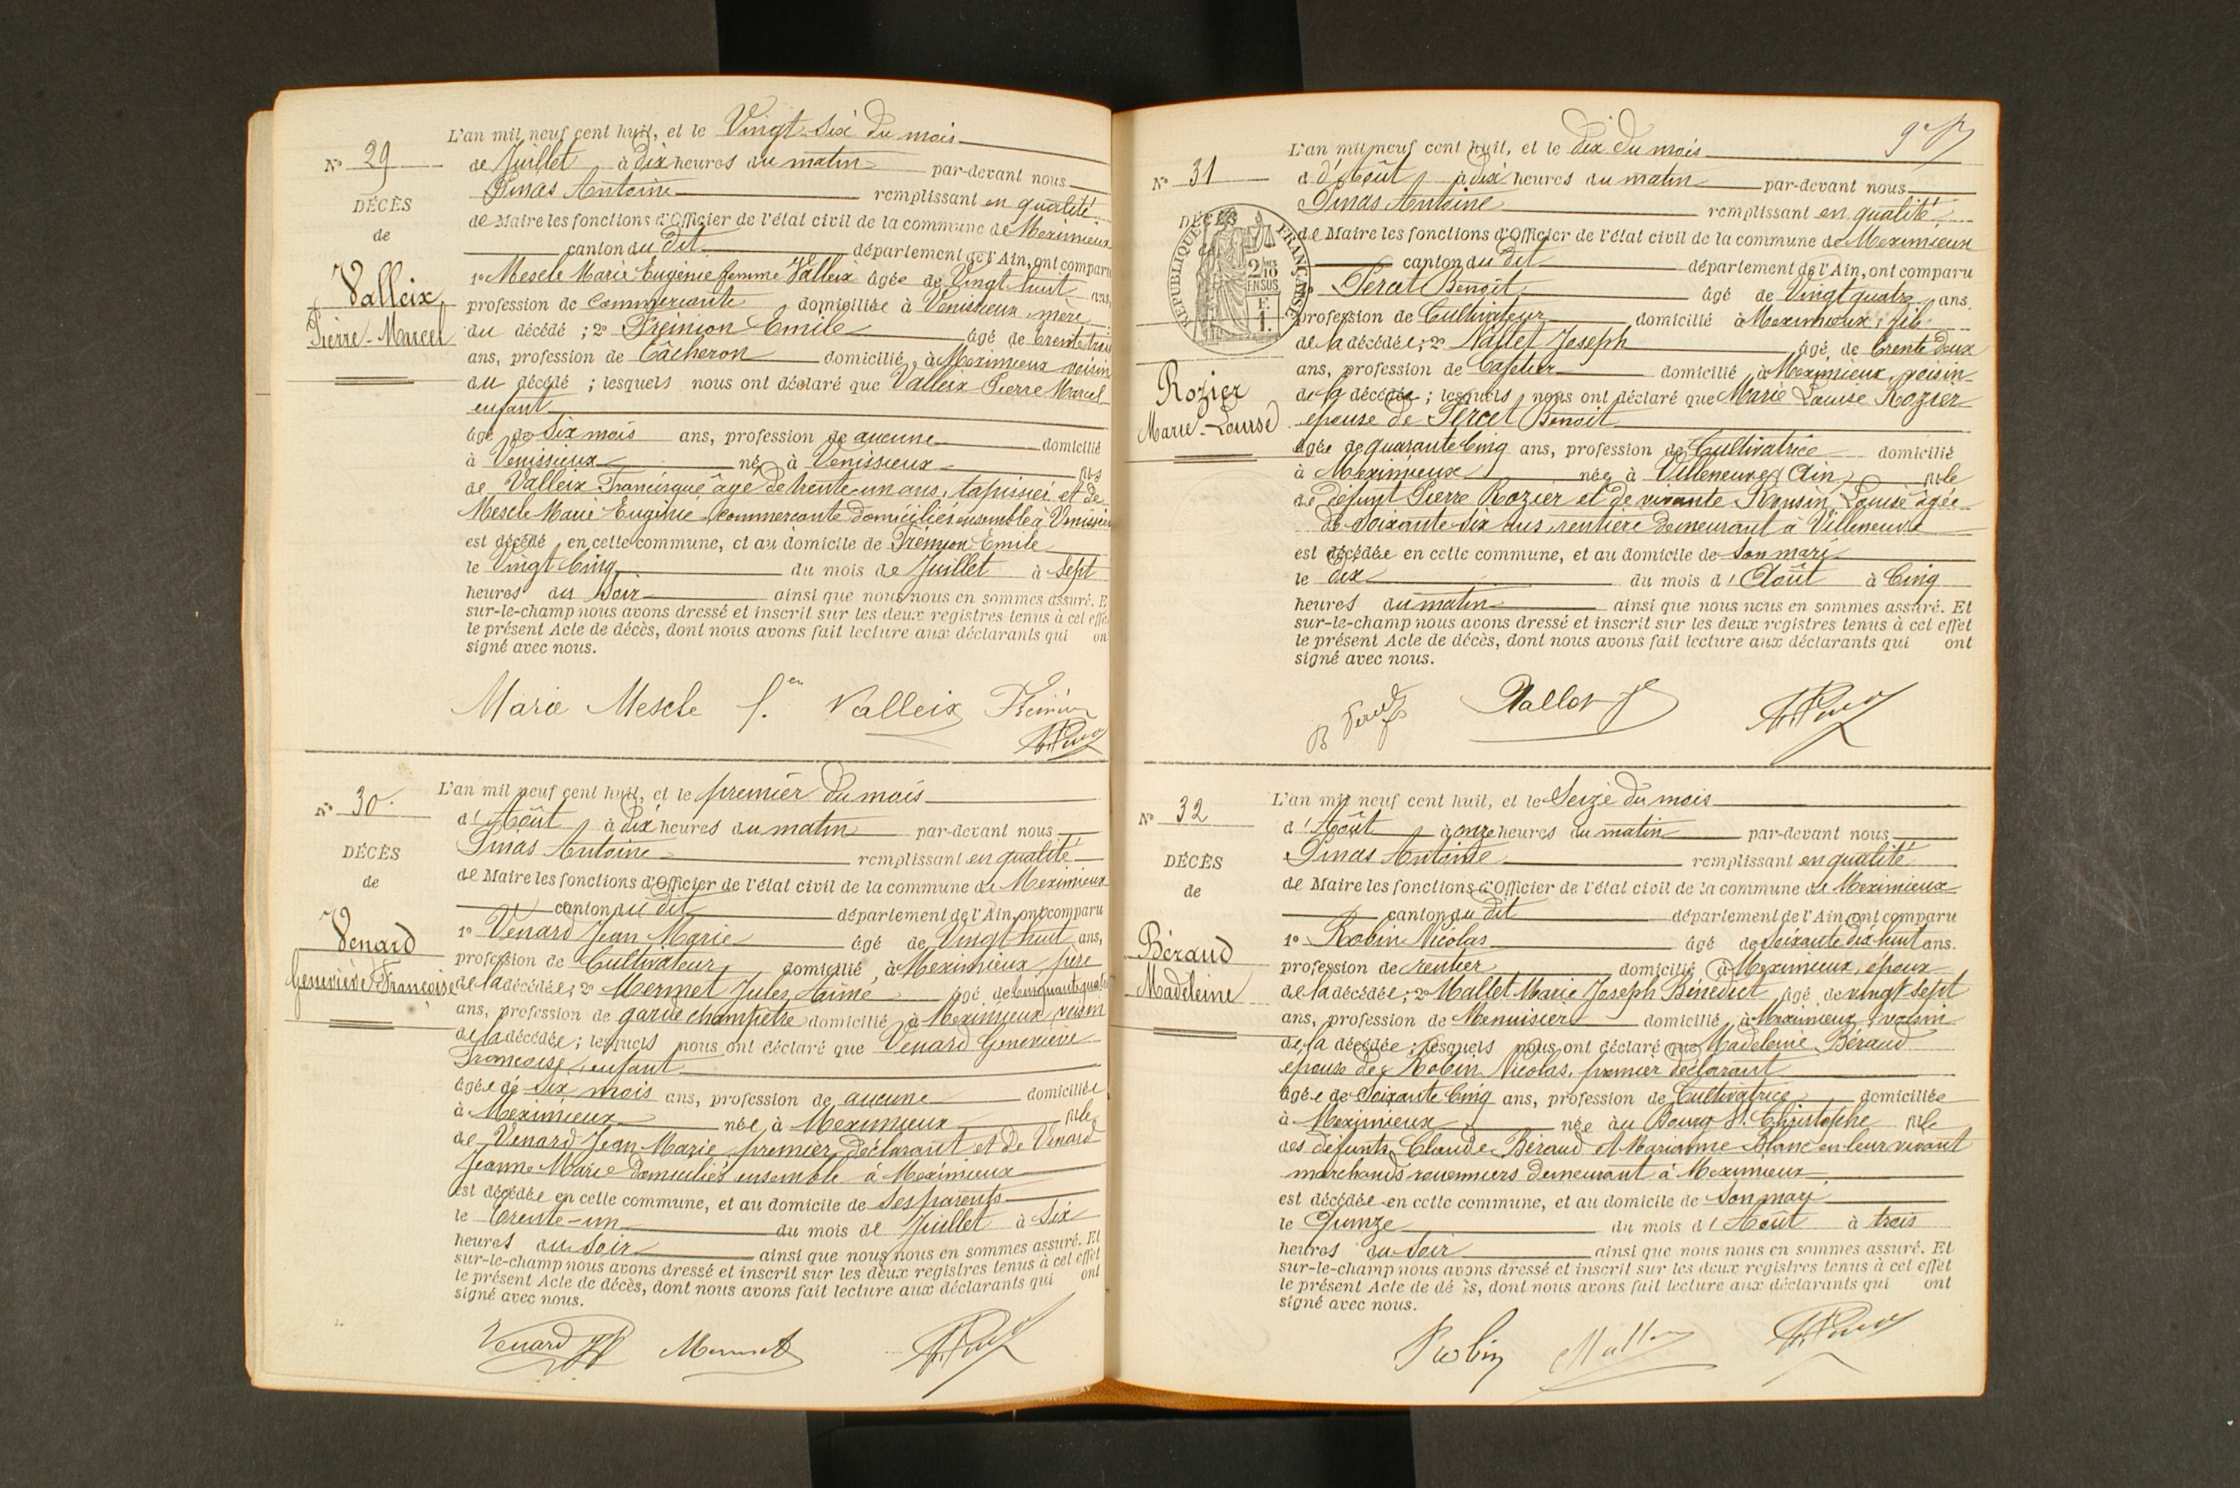 N° 29
DÉCÈS
de
Valleix
Pierre-Marcel
L'an mil neuf cent huit, et le Vingt-six du mois
de Juillet à dix heures du matin par-devant nous
Pinas Antoine remplissant en qualité
de Maire les fonctions d'Officier de l'état civil de la commune de Meximieux
canton du dit département de l'Ain, ont comparu
1° Mescle Marie Eugénie femme Valleix âgée de Vingt huit ans,
profession de Commerçante domiciliée à Venissieux, mère
du décédé ; 2° Émile âgé de trente trois
ans, profession de domicilié, à Meximieux voisin
du décédé ; lesquels nous ont déclaré que Valleix Pierre Marcel
enfant
âgé de Six mois ans, profession de aucune domicilié
à Venissieux né à Venissieux fils
de Valleix Francisque âgé de trente-un ans, tapissier et de
Mescle Marie Eugénie, commerçante domiciliés ensemble à Venissieux
est décédé en cette commune, et au domicile de Émile
le Vingt Cinq du mois de Juillet à Sept
heures du Soir ainsi que nous nous en sommes assuré. E
sur-le-champ nous avons dressé et inscrit sur les deux registres tenus à cet effe
le présent Acte de décès, dont nous avons fait lecture aux déclarants qui on
signé avec nous.
Marie Mescle f. Valleix
N° 30
DÉCÈS
de
Venard
Geneviève Françoise
L'an mil neuf cent huit, et le premier du mois
d'Août à dix heures du matin par-devant nous
Pinas Antoine remplissant en qualité
de Maire les fonctions d'Officier de l'état civil de la commune de Meximieux
canton du dit département de l'Ain, ont comparu
1° Venard Jean Marie âgé de Vingt huit ans,
profession de Cultivateur domicilié à Meximieux, père
de la décédée ; 2° Mermet Jules Aimé âgé de cinquante quatre
ans, profession de garde champêtre domicilié à Meximieux, voisin
de la décédée ; lesquels nous ont déclaré que Venard Geneviève
Françoise, enfant
âgée de six mois ans, profession de aucune domiciliée
à Meximieux née à Meximieux fille
de Venard Jean Marie premier déclarant et de Venard
Jeanne Marie domiciliés ensemble à Meximieux
est décédée en cette commune, et au domicile de Ses parents
le trente-un du mois de Juillet à Six
heures du Soir ainsi que nous nous en sommes assuré. Et
sur-le-champ nous avons dressé et inscrit sur les deux registres tenus à cet effet
le présent Acte de décès, dont nous avons fait lecture aux déclarants qui ont
signé avec nous.
Venard Mermet
N° 31
DÉCÈS
RÉPUBLIQUE FRANÇAISE
2/10
EN SUS
Rozier
Marie-Louise
L'an mil neuf cent huit, et le dix du mois
d'Août à dix heures du matin par-devant nous
Pinas Antoine remplissant en qualité
de Maire les fonctions d'Officier de l'état civil de la commune de Meximieux
canton du dit département de l'Ain, ont comparu
Percet Benoît âgé de Vingt quatre ans
profession de Cultivateur domicilié à Meximieux, fils
de la décédée ; 2° Nallet Joseph âgé de trente deux
ans, profession de Cafetier domicilié à Meximieux, voisin
de la décédée ; lesquels nous ont déclaré que Marie Louise Rozier
épouse de Percet Benoît
âgée de quarante Cinq ans, profession de Cultivatrice domicilié
à Meximieux née à Villeneuve (Ain) fille
de défunt Pierre Rozier et de vivante Louise âgée
de soixante six ans, rentière demeurant à Villeneuve
est décédée en cette commune, et au domicile de Son mari
le dix du mois d'Août à Cinq
heures du matin ainsi que nous nous en sommes assuré. Et
sur-le-champ nous avons dressé et inscrit sur les deux registres tenus à cet effet
le présent Acte de décès, dont nous avons fait lecture aux déclarants qui ont
signé avec nous.
N° 32
DÉCÈS
de
Béraud
Madeleine
L'an mil neuf cent huit, et le Seize du mois
d'Août à onze heures du matin par-devant nous
Pinas Antoine remplissant en qualité
de Maire les fonctions d'Officier de l'état civil de la commune de Meximieux
canton du dit département de l'Ain, ont comparu
1° Robin Nicolas âgé de Soixante dix huit ans.
profession de rentier domicilié à Meximieux, époux
de la décédée ; 2° Mallet Marie Joseph Bénédict âgé de vingt-sept
ans, profession de Menuisier domicilié à Meximieux, voisin
de la décédée ; lesquels nous ont déclaré que Madeleine Béraud
épouse de Robin Nicolas, premier déclarant
âgée de Soixante Cinq ans, profession de Cultivatrice domiciliée
à Meximieux née au Bourg St. Christophe fille
des défunts Claude Béraud et Marianne Blanc en leur vivant
marchands demeurant à Meximieux
est décédée en cette commune, et au domicile de Son mari
le Quinze du mois d'Août à trois
heures du Soir ainsi que nous nous en sommes assuré. Et
sur-le-champ nous avons dressé et inscrit sur les deux registres tenus à cet effet
le présent Acte de dé s, dont nous avons fait lecture aux déclarants qui ont
signé avec nous.
Robin